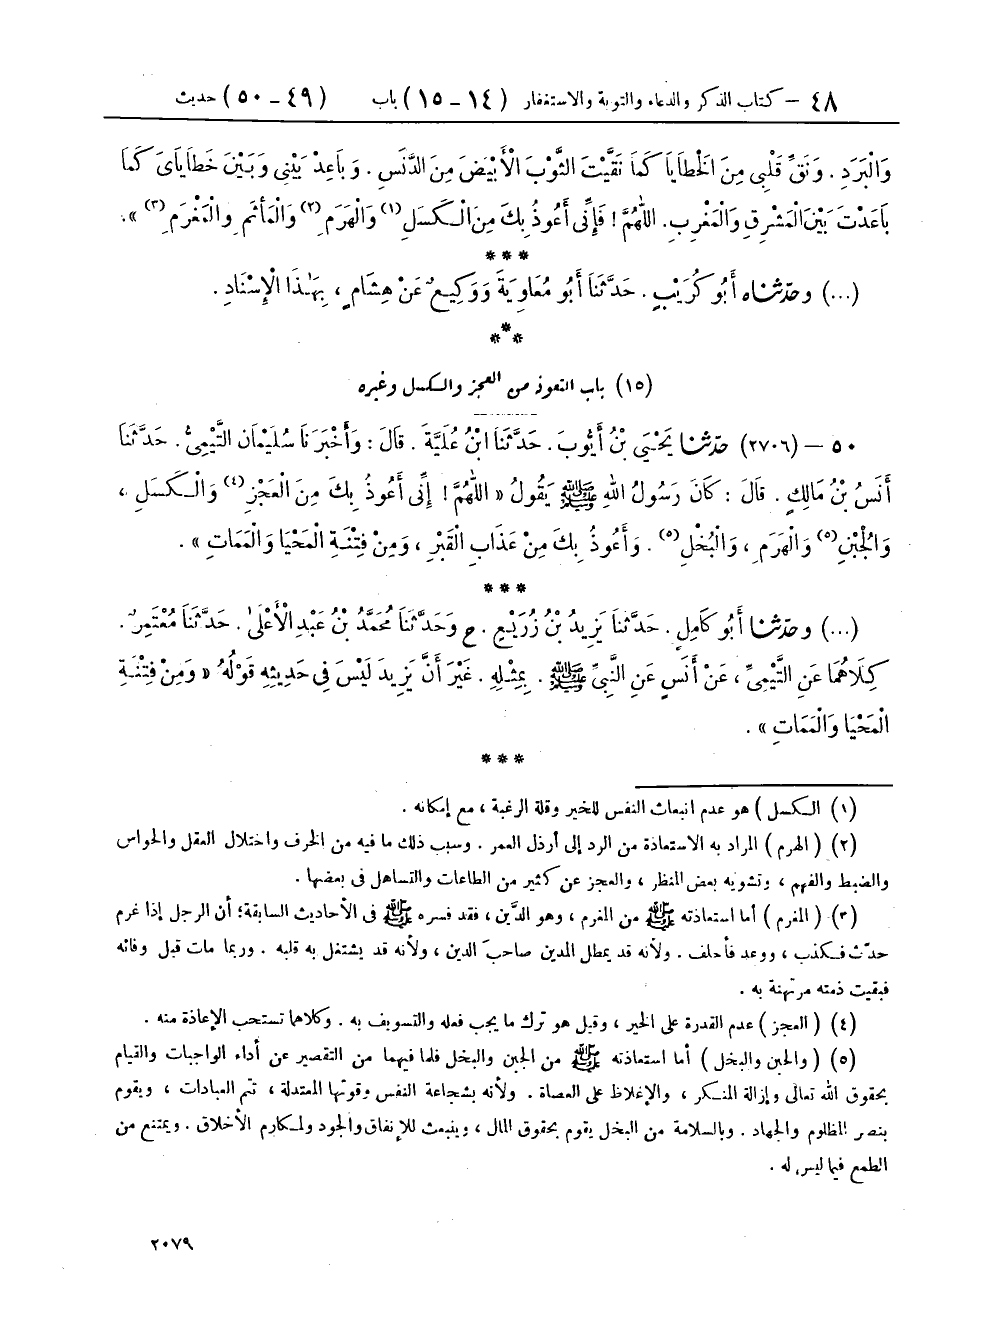 ٤٨ - كتاب الذكر والدعاء والتوبة والاستغفار (١٤ - ١٥) باب (٤٩ - ٥٠) حديث
وَالْبَرَدِ . وَنَقِّ قَلْبِي مِنَ الْخَطَايَا كَمَا نَقَّيْتَ الثَّوْبَ الْأَبْيَضَ مِنَ الدَّنَسِ . وَبَاعِدْ بَيْنِي وَبَيْنَ خَطَايَايَ كَمَا
بَاعَدْتَ بَيْنَ الْمَشْرِقِ وَالْمَغْرِبِ. اللَّهُمَّ! فَإِنِّي أَعُوذُ بِكَ مِنَ الْكَسَلِ(١) وَالْهَرَمِ(٢) وَالْمَأْثَمِ وَالْمَغْرَمِ(٣) ».
***
(...) وحَدَّثَنَاه أَبُو كُرَيْبٍ . حَدَّثَنَا أَبُو مُعَاوِيَةَ وَوَكِيعٌ عَنْ هِشَامٍ ، بِهَٰذَا الْإِسْنَادِ .
***
(١٥) باب التعوذ من العجز والكسل وغيره
٥٠ – (٢٧٠٦) حدّثنا يَحْيَى بْنُ أَيُّوبَ . حَدَّثَنَا ابْنُ عُلَيَّةَ . قَالَ : وَأَخْبَرَنَا سُلَيْمَانُ التَّيْمِيُّ . حَدَّثَنَا
أَنَسُ بْنُ مَالِكٍ . قَالَ : كَانَ رَسُولُ اللهِ ﷺ يَقُولُ « اللَّهُمَّ! إِنِّي أَعُوذُ بِكَ مِنَ الْعَجْزِ(٤) وَالْكَسَلِ ،
وَالْجُبْنِ(٥) وَالْهَرَمِ ، وَالْبُخْلِ(٥) . وَأَعُوذُ بِكَ مِنْ عَذَابِ الْقَبْرِ ، وَمِنْ فِتْنَةِ الْمَحْيَا وَالْمَمَاتِ » .
***
(...) وحدّثنا أَبُو كَامِلٍ . حَدَّثَنَا يَزِيدُ بْنُ زُرَيْعٍ . ح وَحَدَّثَنَا مُحَمَّدُ بْنُ عَبْدِ الْأَعْلَىٰ . حَدَّثَنَا مُعْتَمِرٌ .
كِلَاهُمَا عَنِ التَّيْمِيِّ ، عَنْ أَنَسٍ عَنِ النَّبِيِّ ﷺ . بِمِثْلِهِ . غَيْرَ أَنَّ يَزِيدَ لَيْسَ فِي حَدِيثِهِ قَوْلُهُ « وَمِنْ فِتْنَةِ
الْمَحْيَا وَالْمَمَاتِ » .
***
(١) ( الكسل ) هو عدم انبعاث النفس للخير وقلة الرغبة ، مع إمكانه .
(٢) ( الهرم ) المراد به الاستعاذة من الرد إلى أرذل العمر . وسبب ذلك ما فيه من الخرف واختلال العقل والحواس
والضبط والفهم ، وتشويه بعض المنظر ، والعجز عن كثير من الطاعات والتساهل فى بعضها .
(٣) ( المغرم ) أما استعاذته ﷺ من المغرم ، وهو الدَّين ، فقد فسره ﷺ فى الأحاديث السابقة؛ أن الرجل إذا غرم
حدّث فكذب ، ووعد فأخلف . ولأنه قد يمطل المدين صاحبَ الدين ، ولأنه قد يشتغل به قلبه . وربما مات قبل وفائه
فبقيت ذمته مرتهنة به .
(٤) ( العجز ) عدم القدرة على الخير ، وقيل هو ترك ما يجب فعله والتسويف به . وكلاهما تستحب الإعاذة منه .
(٥) ( والجبن والبخل ) أما استعاذته ﷺ من الجبن والبخل فلما فيهما من التقصير عن أداء الواجبات والقيام
بحقوق الله تعالى وإزالة المنكر ، والإغلاظ على العصاة . ولأنه بشجاعة النفس وقوتها المعتدلة ، تتم العبادات ، ويقوم
بنصر المظلوم والجهاد . وبالسلامة من البخل يقوم بحقوق المال ، وينبعث للإنفاق والجود ولمكارم الأخلاق . ويمتنع من
الطمع فيما ليس له .
٢٠٧٩